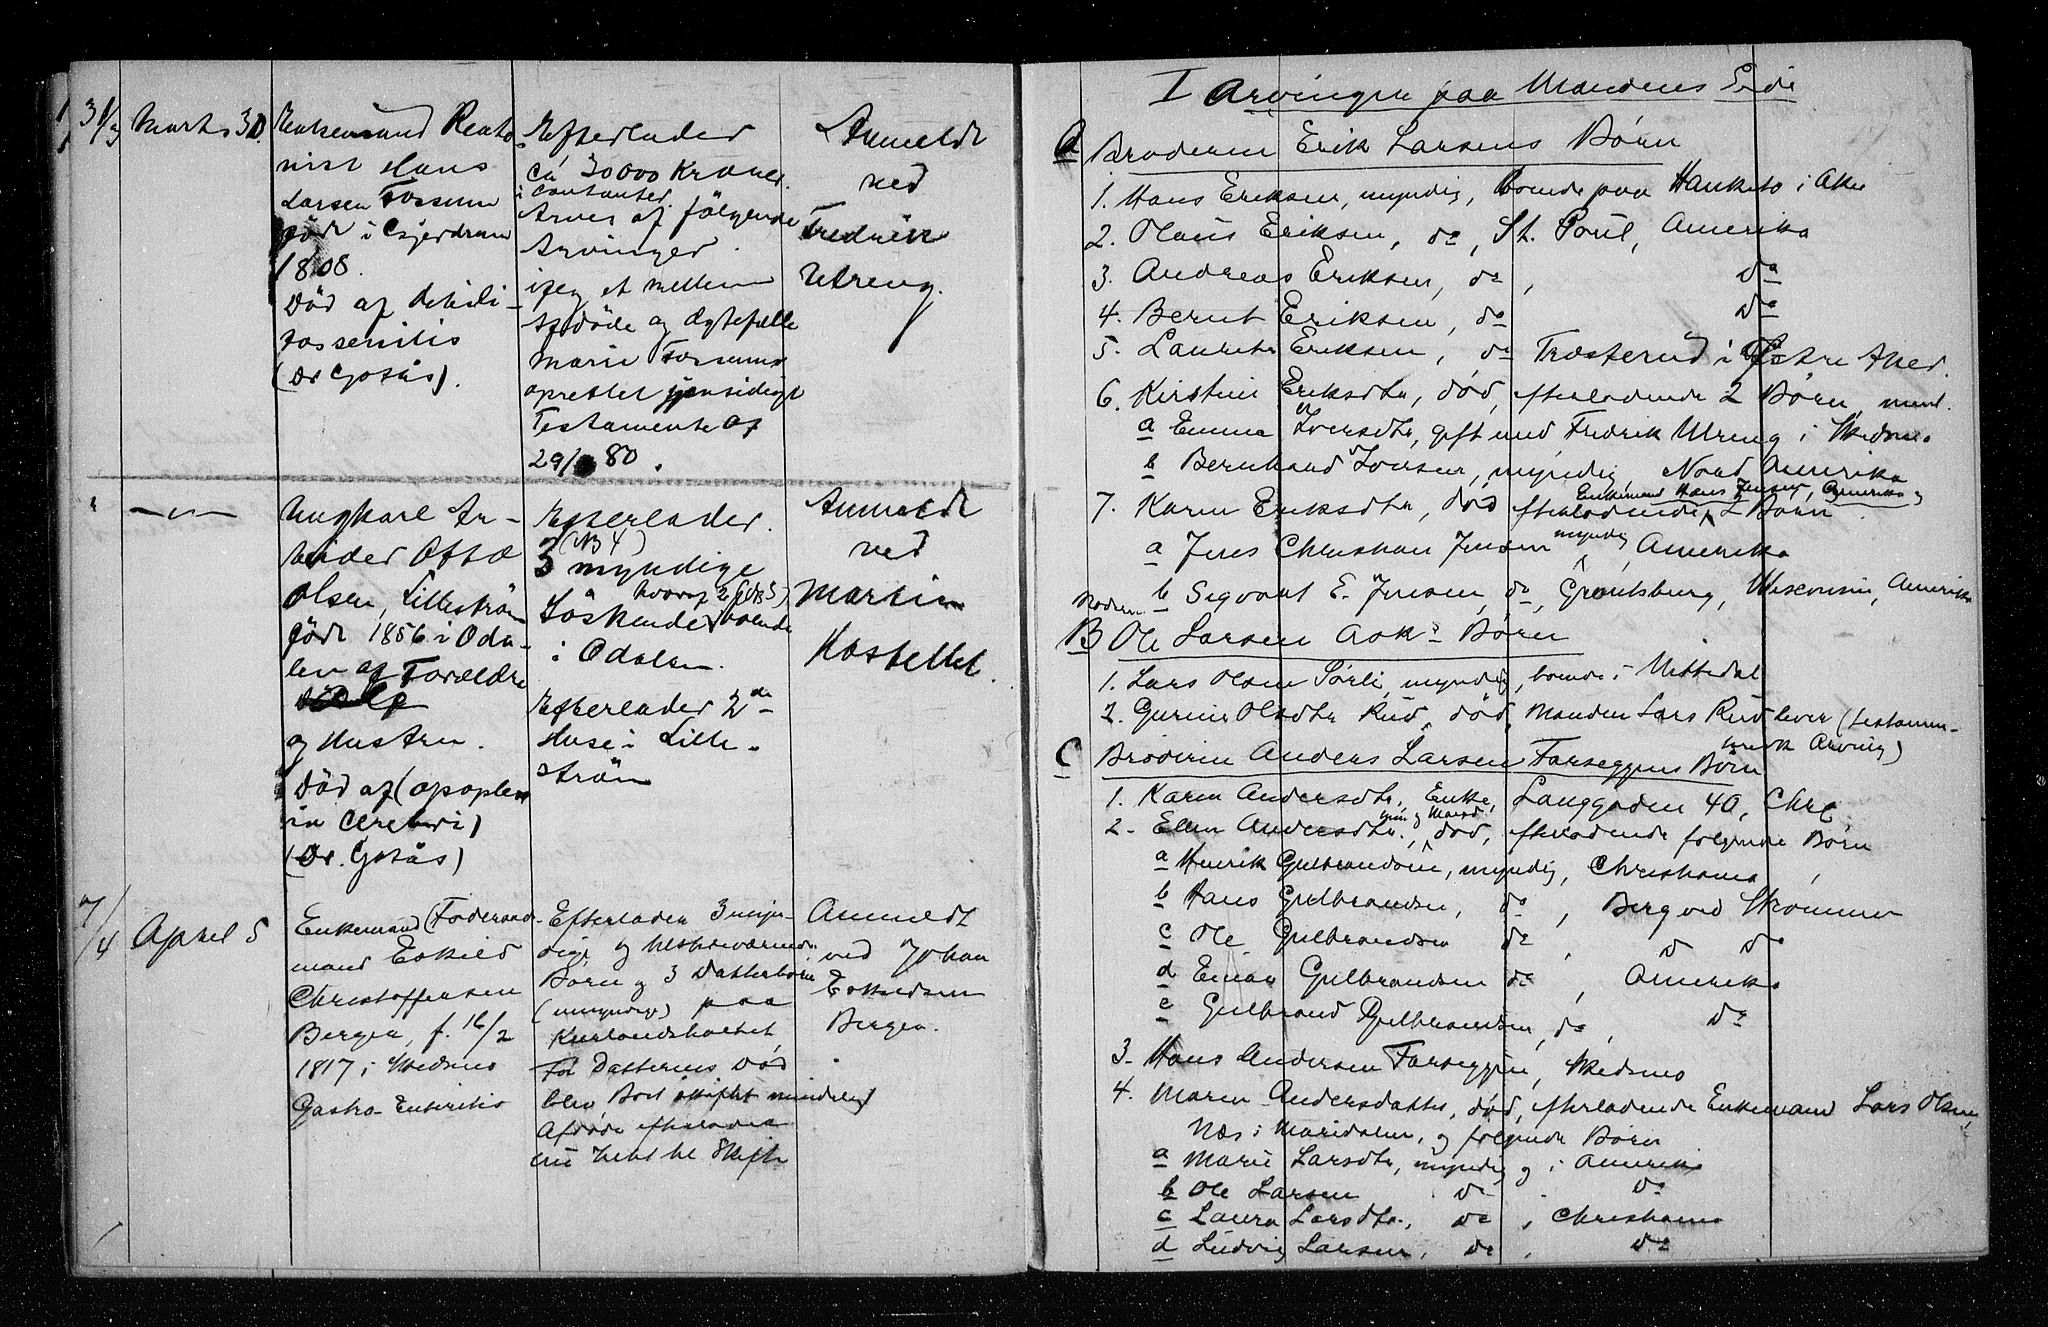 31/3
Marts 30.
Enkemand Rento
nist Hans
Larsen Fossum
født i Gjerdrum
1808.
Død af debili-
tas senilis
(Dr Gotås).
Efterlader
ca 30000 Kroner.
i contanter
Arves af følgende
Arvinger.
et mellem
Afdøde og Ægtefælle
Marie Fossums
oprettet gjensidigt
Testamente af
29/ 80.
Anmeldt
ved
Fredrik
Utreng.
" —"—
Ungkarl Ar-
beider Oftæ
Olsen, Lillestrøm
født 1856 i Oda-
len af Forældre
og Hustru.
Død af (apoplex
ia cerebri)
(Dr. Gotås)
Efterlader
(NB 4)
3 myndige
hvoraf 2
Søskende boende
i Odalen.
Efterlader 2de
Huse i Lille-
strøm
Anmeldt
ved
Martin
Kastellet.
7/4
April 5
Enkemand (Føderaads-
mand Eskild
Christoffersen
Berger, f. 16/2
1817 i Skedsmo
Gastro-Enteritis
Efterlader 3 myn-
dige og tilstedeværende
Børn og 3 Datterbørn
(umyndige) paa
Kurlandsholtet
For Datterens Død
blev Boet skiftet mindelig
Afdøde efterlader
Skifte
Anmeldt
ved Johan
Eskildsen
Berger.
I Arvingen paa Mandens Side
A Broderen Erik Larsens Børn
1. Hans Eriksen, myndig, boende paa Hauketo i Aker
2. Olaus Eriksen, do, St. Poul, Amerika
3. Andreas Eriksen, do, do
4. Bernt Eriksen, do do
5. Lauritz Eriksen, do Træsterud i Østre Aker.
6. Kirstine Eriksdtr, død, efterladende 2 Børn, neml.
a Emma Iversdtr, gift med Fredrik Utreng i Skedsmo
b Bernhard Iversen, myndig Nord Amerika
Enkemand Hans Jensen, Amerika og
7. Karen Eriksdtr, død efterladende 2 Børn.
a Jens Christian Jensen myndig, Amerika
b Sigvart E. Jensen, do, Grantsburg, Wisconsin, Amerika
Broderen
B Ole Larsen Aoks Børn
1. Lars Olsen Sørli, myndig, boende i Nittedal
2. Gurine Olsdtr Rud, død, Manden Lars Rud lever (testamen-
tarisk Arving)
C Broderen Anders Larsen Farseggens Børn
1. Karen Andersdtr, Enke, Langgaden 40, Chra
2. Ellen Andersdtr. død, efterladende følgende Børn
a Henrik Gulbrandsen, myndig, Christiania
b Hans Gulbrandsen, do, Berg ved Strømmen
c Ole Gulbrandsen do, do do
d Einar Gulbrandsen do, Amerika
e Gulbrand Gulbrandsen, do, do
3. Hans Andersen Farseggen, Skedsmo
4. Maren Andersdatter, død, efterladende Enkemand Lars Olsen,
Næs i Maridalen, og følgende Børn
a Marie Larsdtr, myndig og i Amerika
b Ole Larsen do do
c Laura Larsdtr, do, Christiania
d Ludvig Larsen, do, do